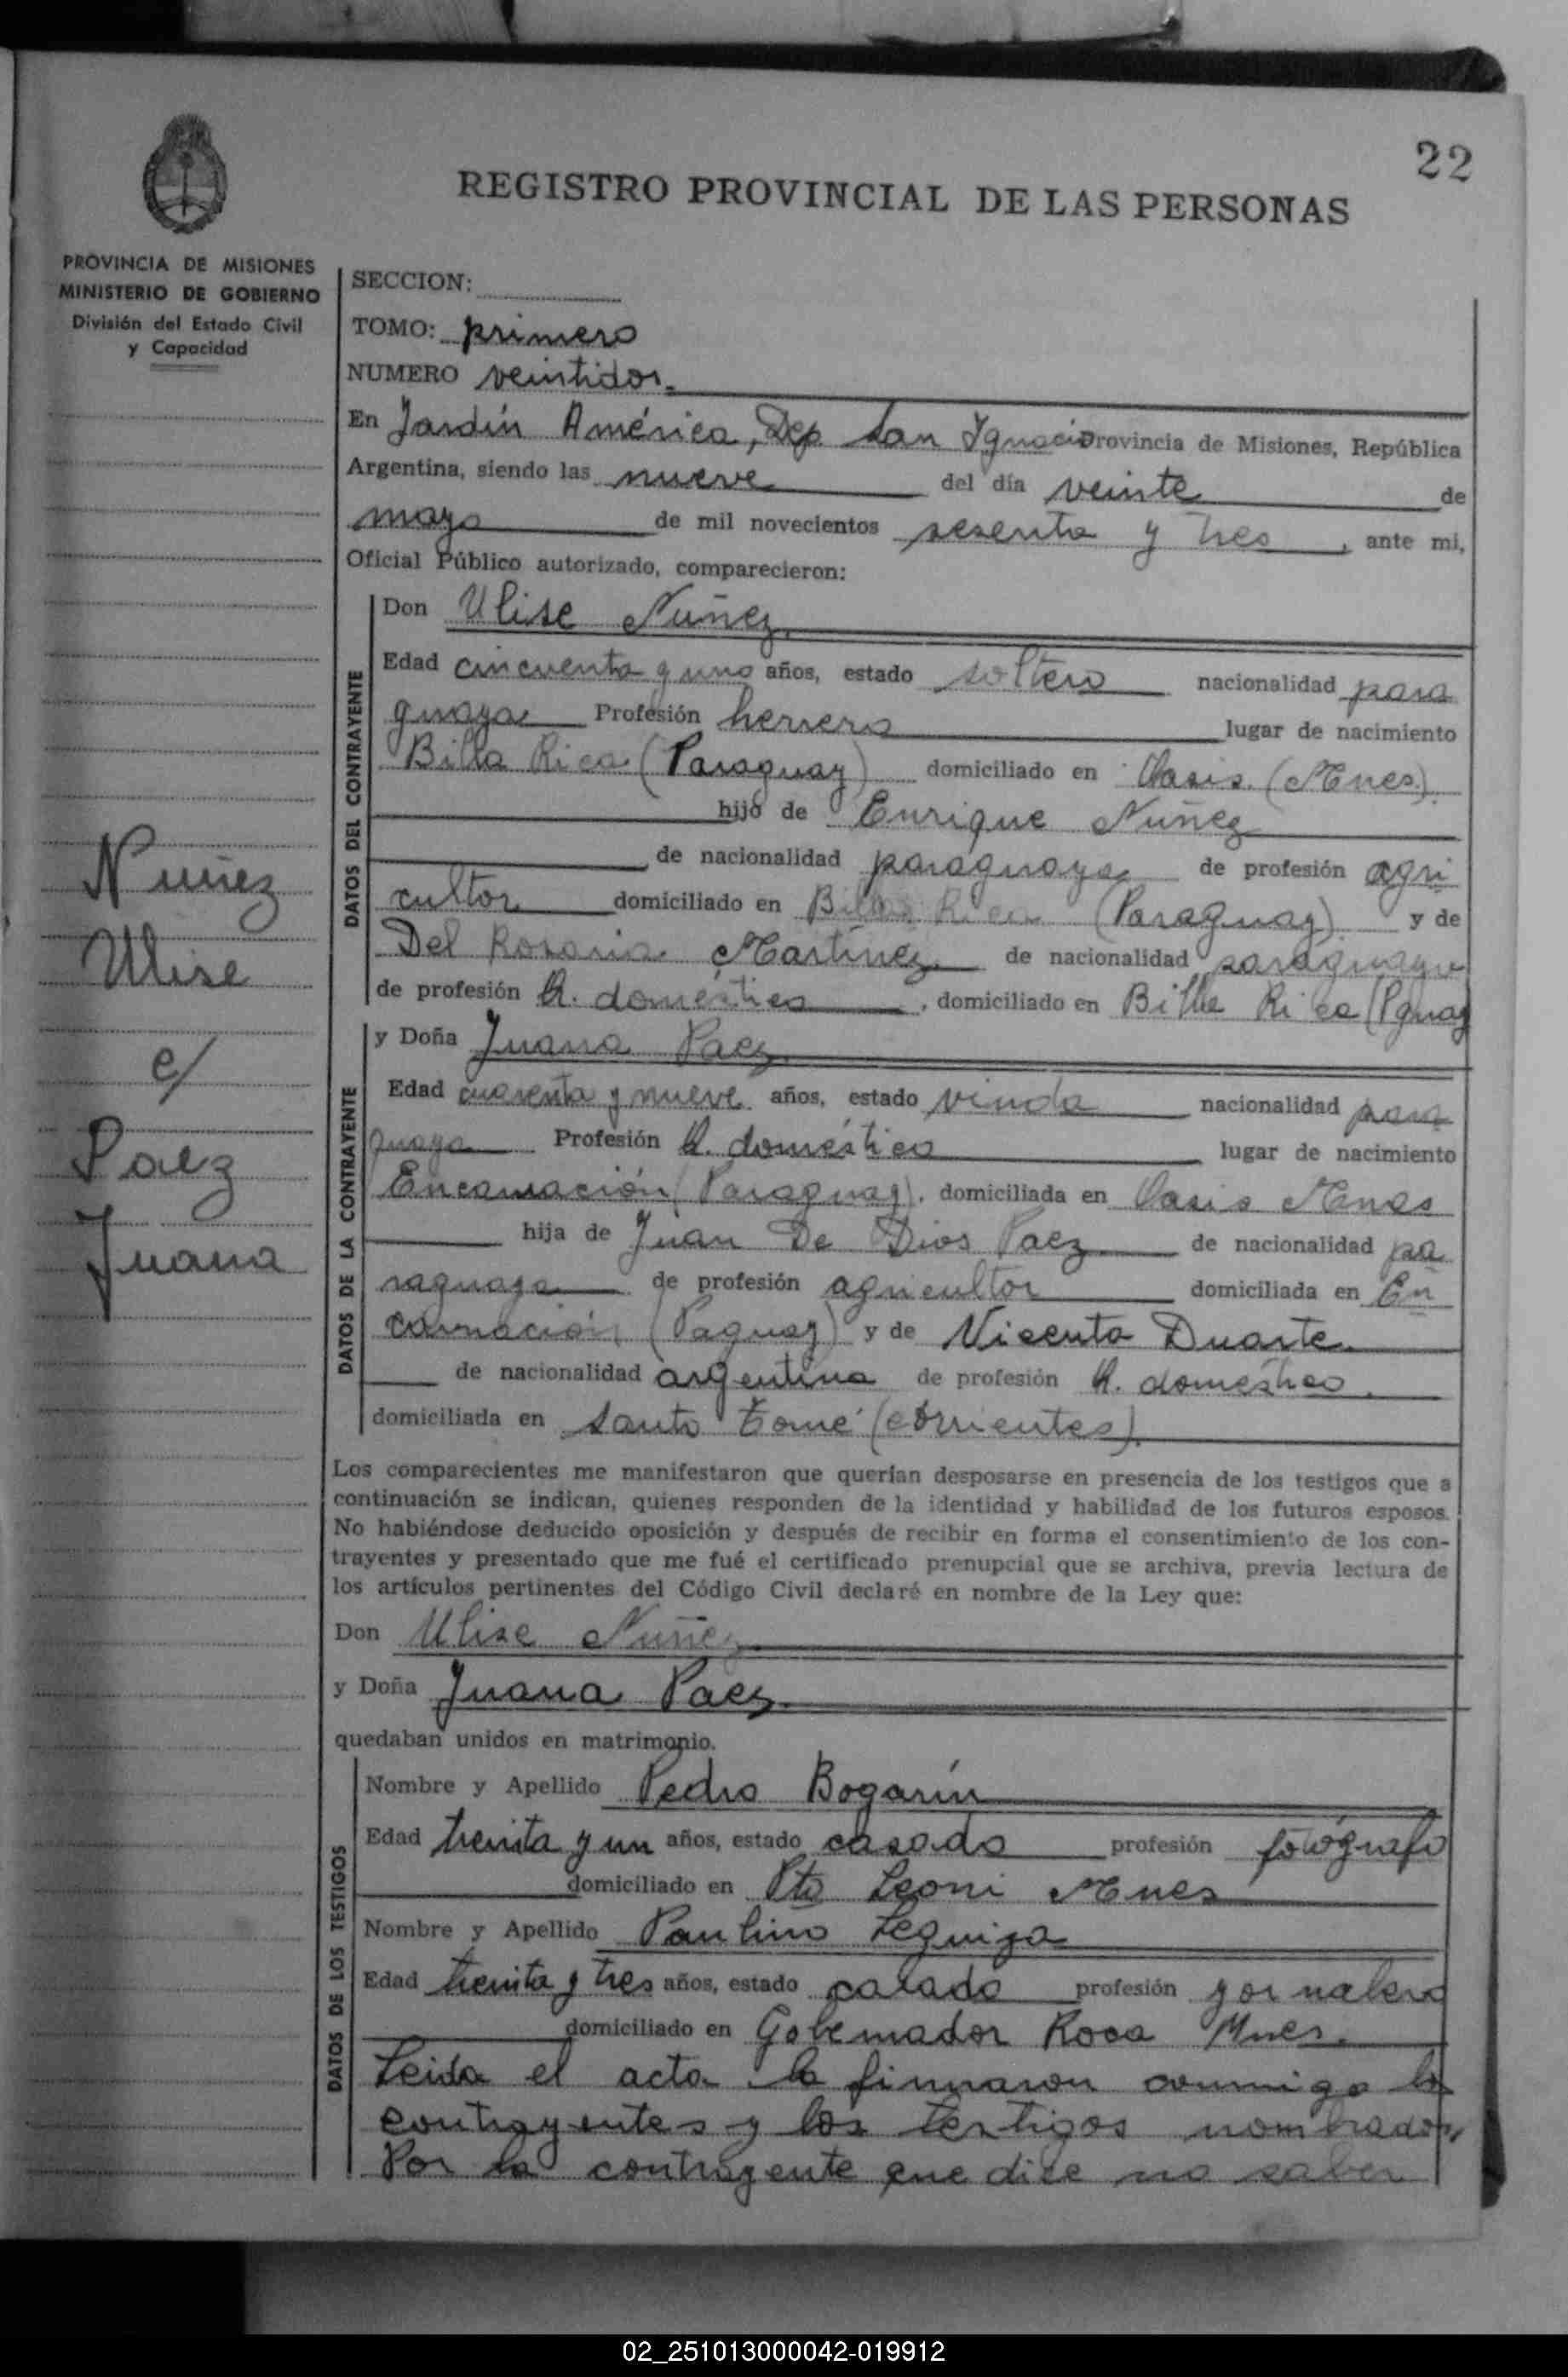 22
REGISTRO PROVINCIAL DE LAS PERSONAS
PROVINCIA DE MISIONES
MINISTERIO DE GOBIERNO
División del Estado Civil
y Capacidad
SECCION:
TOMO: primero
NUMERO veintidos.
En Jardín América, Dep. San Ignacio Provincia de Misiones, República
Argentina, siendo las nueve del día veinte de
mayo de mil novecientos sesenta y tres, ante mi,
Oficial Público autorizado, comparecieron:
DATOS DEL CONTRAYENTE
Don Ulise Nuñez
Edad cincuenta y uno años, estado soltero nacionalidad para
guaya Profesión herrero lugar de nacimiento
Billa Rica (Paraguay) domiciliado en Oasis. (Mnes).
hijo de Enrique Nuñez
de nacionalidad paraguaya de profesión agri
cultor domiciliado en Billa Rica (Paraguay) y de
Del Rosario Martínez de nacionalidad paraguaya
de profesión Q. domestico, domiciliado en Billa Rica (Pguay
DATOS DE LA CONTRAYENTE
y Doña Juana Paez
Edad cuarenta y nueve años, estado viuda nacionalidad para
guaya Profesión Q. doméstico lugar de nacimiento
Encarnación (Paraguay). domiciliada en Oasis Mnes
hija de Juan De Dios Paez de nacionalidad pa
raguaya de profesión agricultor domiciliada en En
carnación (Paguay) y de Vicenta Duarte
de nacionalidad argentina de profesión Q. doméstico.
domiciliada en Santo Tomé (corrientes).
Nuñez
Ulise
c/
Paez
Juana
Los comparecientes me manifestaron que querían desposarse en presencia de los testigos que a
continuación se indican, quienes responden de la identidad y habilidad de los futuros esposos.
No habiéndose deducido oposición y después de recibir en forma el consentimiento de los con-
trayentes y presentado que me fué el certificado prenupcial que se archiva, previa lectura de
los artículos pertinentes del Código Civil declaré en nombre de la Ley que:
Don Ulise Nuñez
y Doña Juana Paez
quedaban unidos en matrimonio.
DATOS DE LOS TESTIGOS
Nombre y Apellido Pedro Bogarín
Edad treinta y un años, estado casado profesión fotógrafo
domiciliado en Pto Leoni Mnes
Nombre y Apellido Paulino Leguiza
Edad treinta y tres años, estado casado profesión jornalero
domiciliado en Gobernador Roca Mnes.
Leida el acta la firmaron conmigo los
contrayentes y los testigos nombrados,
Por la contrayente que dice no saber
02_251013000042-019912